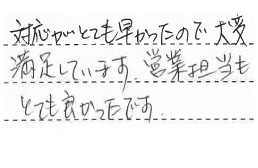 対応がとても早かったので大変
満足しています。営業担当も
とても良かったです。